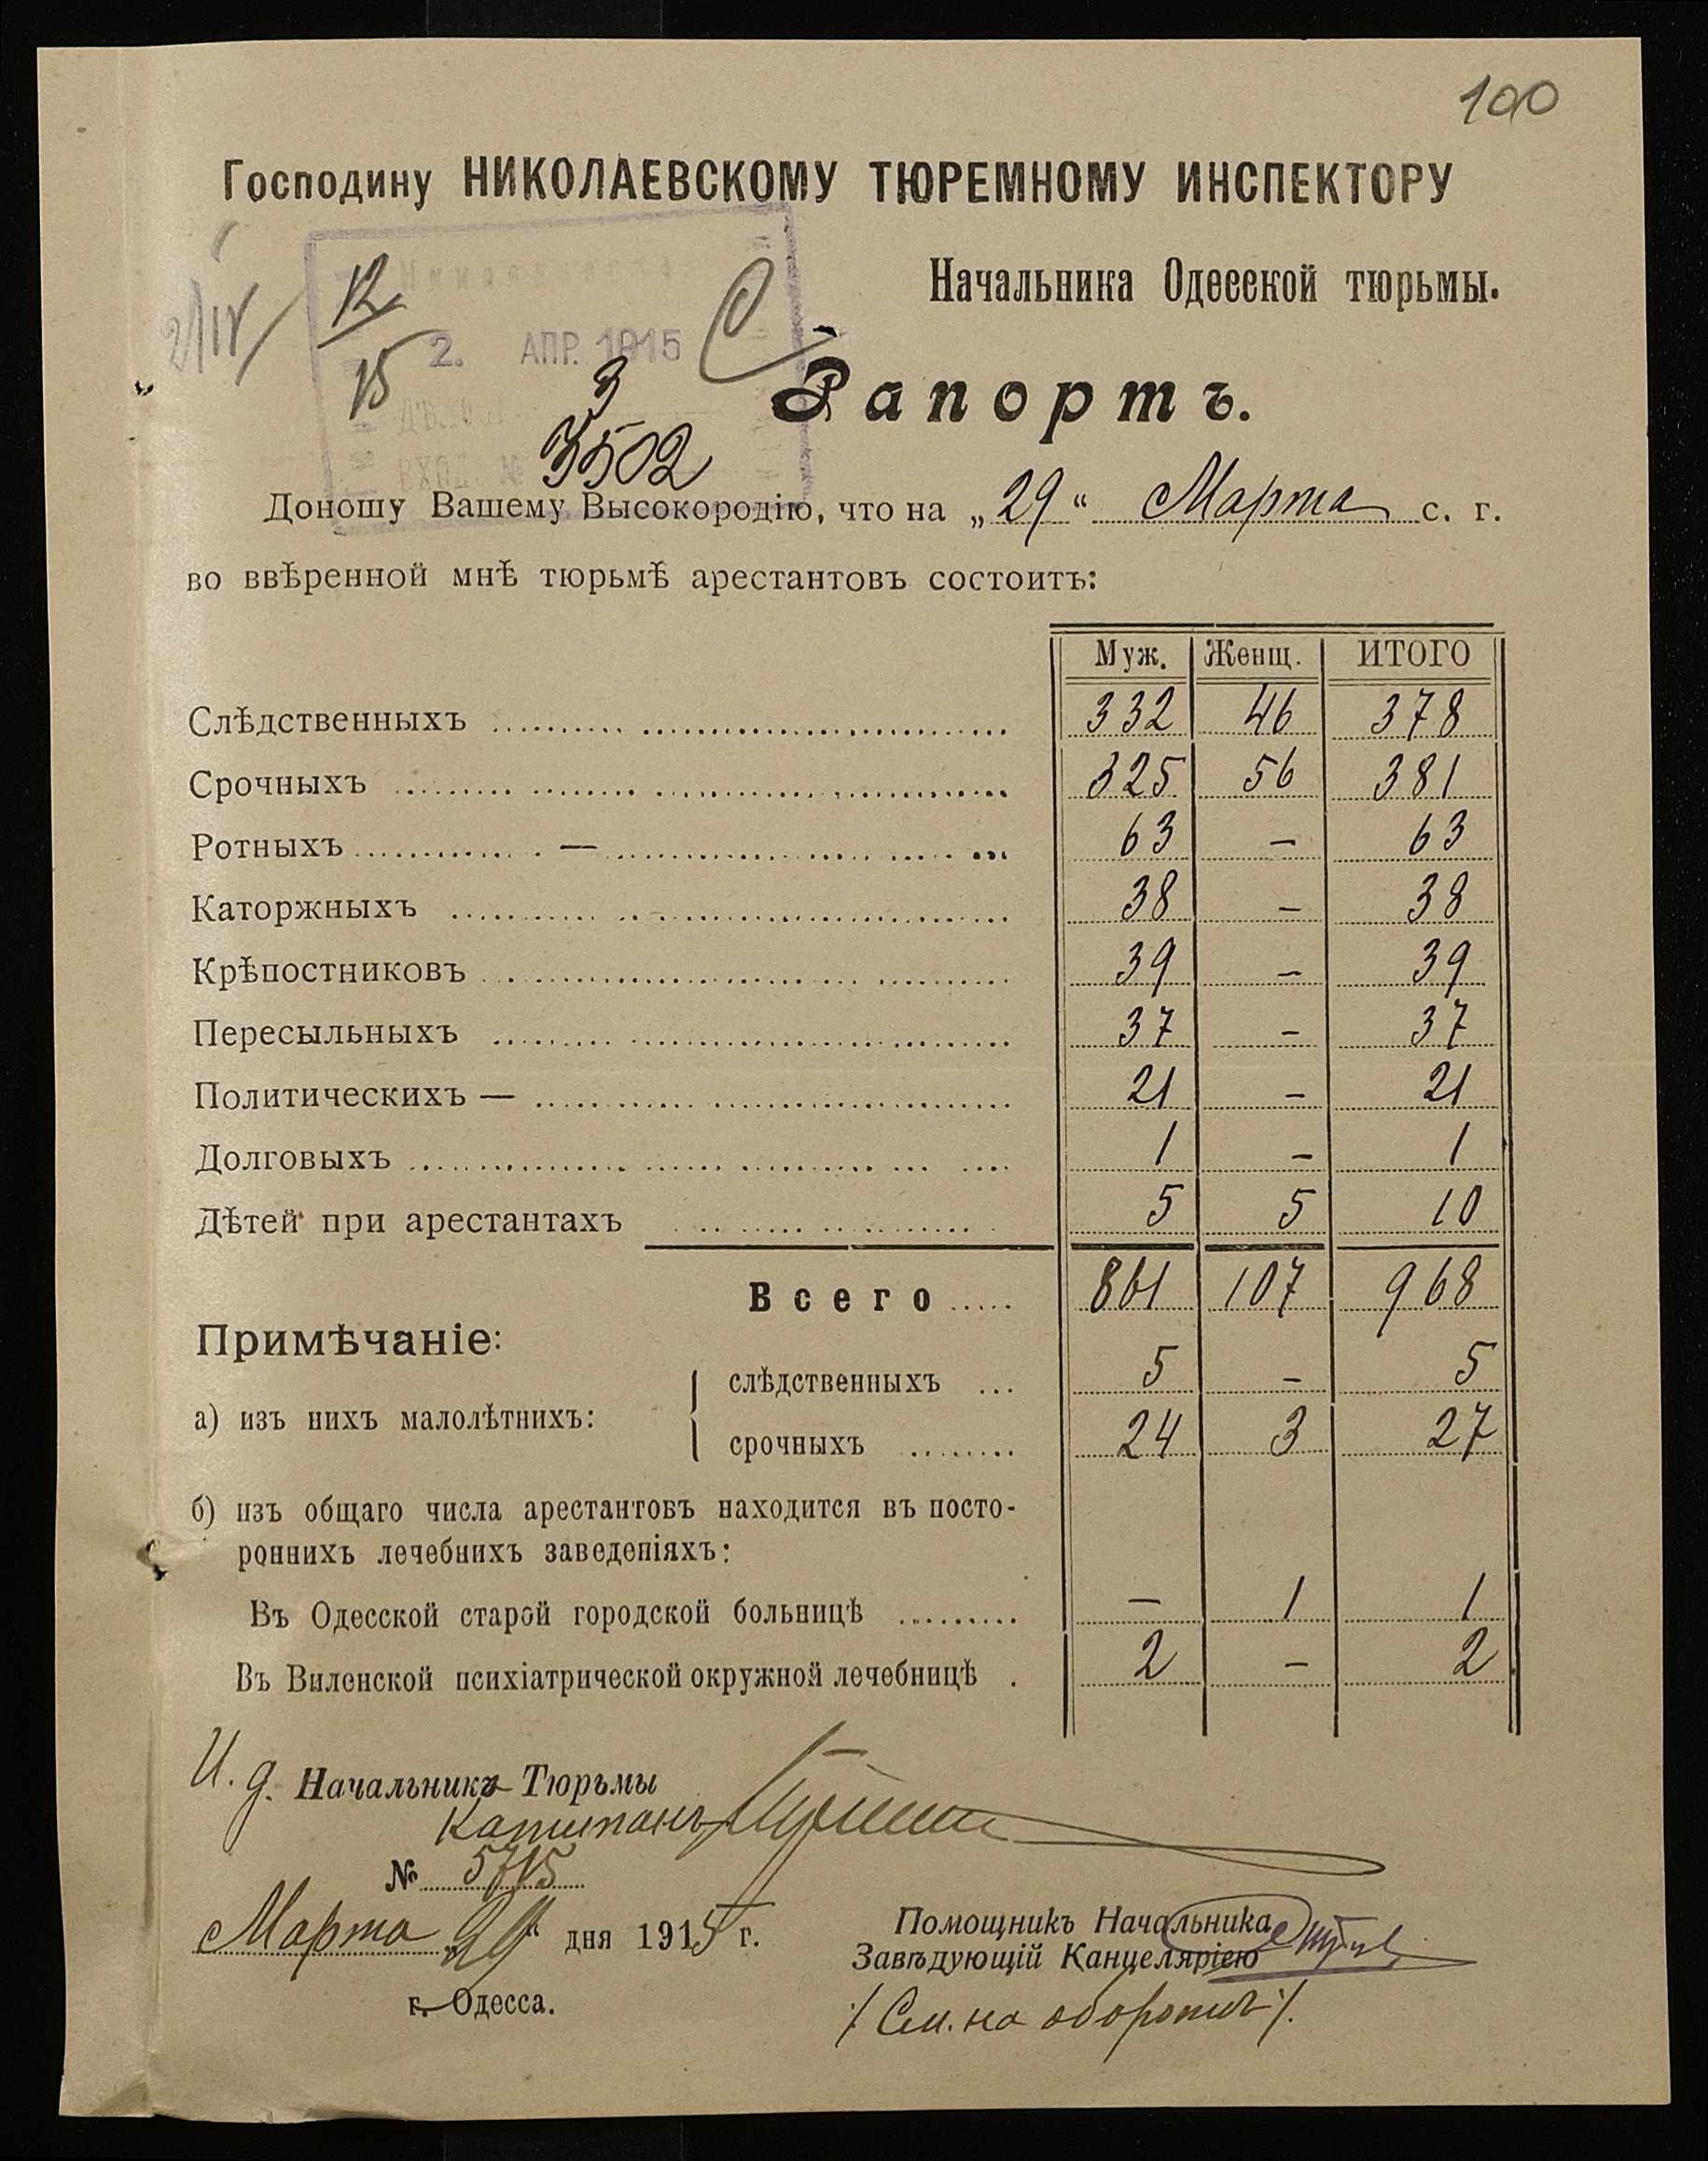 100
Господину НИКОЛАЕВСКОМУ ТЮРЕМНОМУ ИНСПЕКТОРУ
Начальника Одесской тюрьмы.
2/IV
12
15
2. АПР. 1915
3
3502
Рапортъ.
Доношу Вашему Высокородію, что на „29“ Марта с. г.
во ввѣренной мнѣ тюрьмѣ арестантовъ состоитъ:
Муж. Женщ. ИТОГО
Слѣдственныхъ 332 46 378
Срочныхъ 325 56 381
Ротныхъ — 63 — 63
Каторжныхъ 38 — 38
Крѣпостниковъ 39 — 39
Пересыльныхъ 37 — 37
Политическихъ — 21 — 21
Долговыхъ 1 — 1
Дѣтей при арестантахъ 5 5 10
Всего 861 107 968
Примѣчаніе:
а) изъ нихъ малолѣтнихъ:
слѣдственныхъ 5 — 5
срочныхъ 24 3 27
б) изъ общаго числа арестантовъ находится въ посто-
роннихъ лечебнихъ заведеніяхъ:
Въ Одесской старой городской больницѣ — 1 1
Въ Виленской психіатрической окружной лечебницѣ 2 — 2
И. д. Начальника Тюрьмы
Капитанъ
№ 5715
Марта „29“ дня 1915 г.
г. Одесса.
Помощникъ Начальника
Завѣдующій Канцеляріею
/ См. на оборотѣ /.